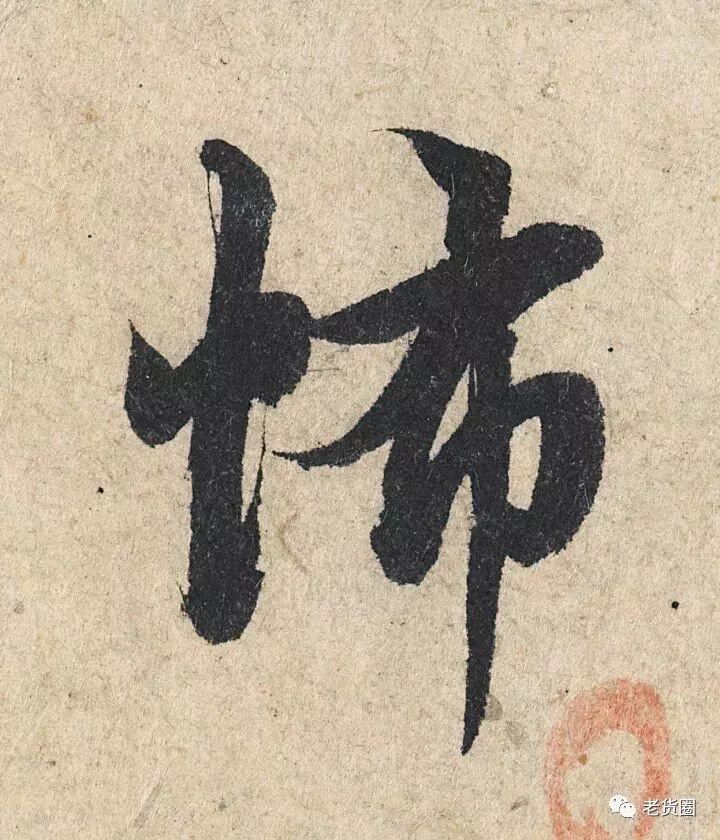 怖
老货圈